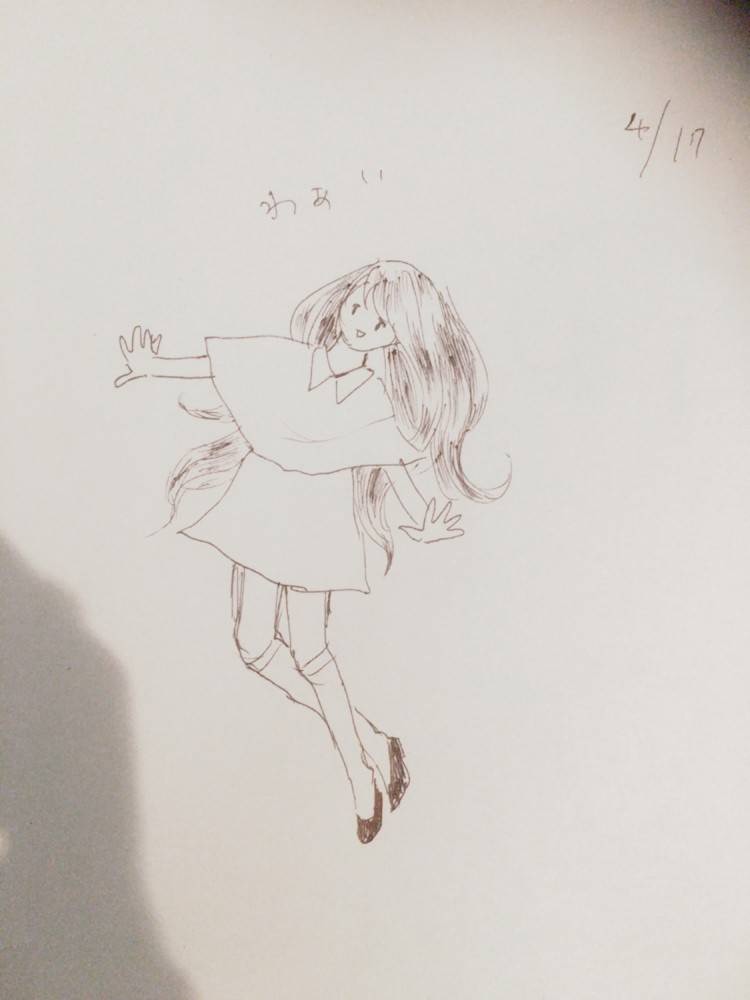 4/17
わぁい